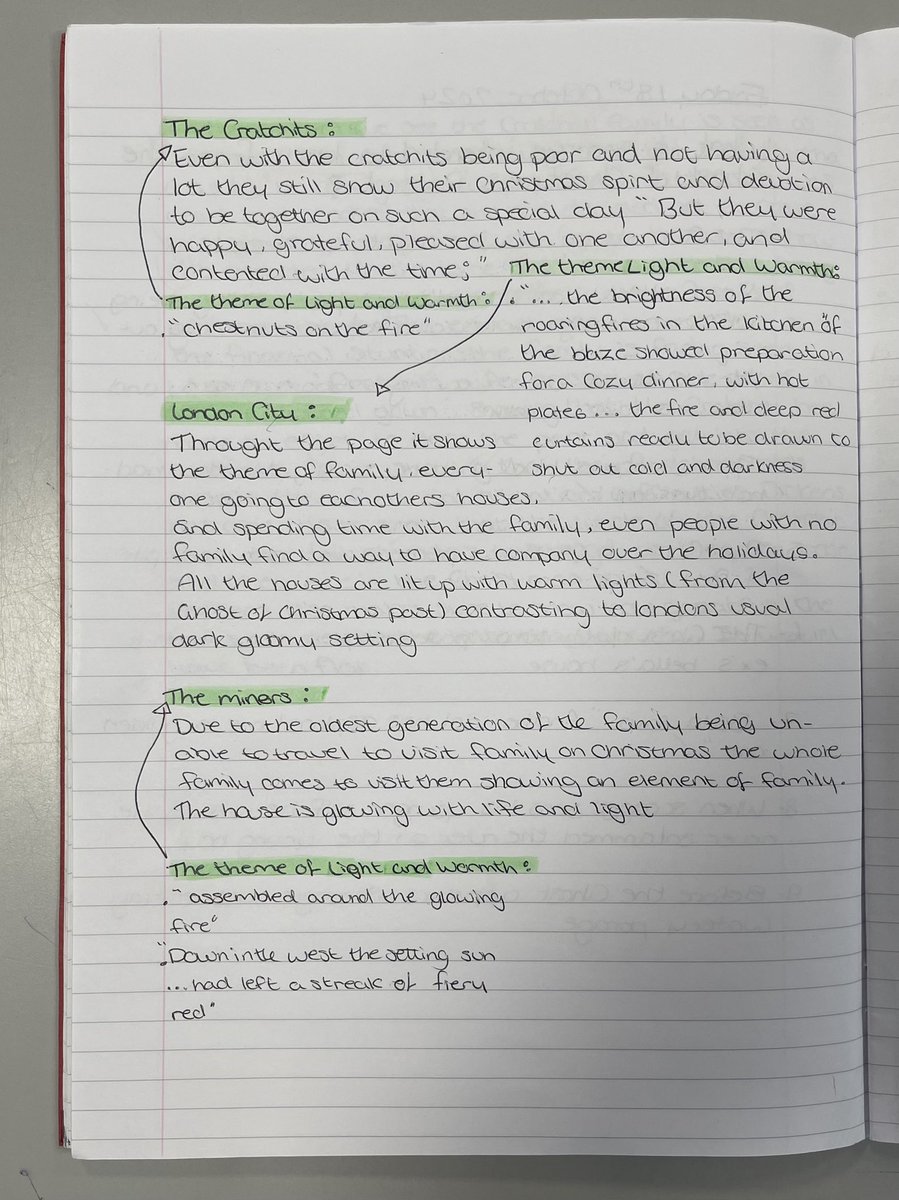 The Cratchits :
Even with the cratchits being poor and not having a
lot they still show their christmas spirt and devotion
to be together on such a special day " But they were
happy, grateful, pleased with one another, and
contented with the time; "
The theme of Light and Warmth :
. "chestnuts on the fire"
The theme Light and Warmth:
. "... the brightness of the
roaring fires in the kitchen of
the blaze showed preparation
for a cozy dinner, with hot
plates ... the fire and deep red
curtains ready to be drawn to
shut out cold and darkness
London City :
Throught the page it shows
the theme of family, every-
one going to eachothers houses.
And spending time with the family, even people with no
family find a way to have company over the holidays.
All the houses are lit up with warm lights (from the
Ghost of christmas past) contrasting to londons usual
dark gloomy setting
The miners :
Due to the oldest generation of the family being un-
able to travel to visit family on christmas the whole
family comes to visit them showing an element of family.
The house is glowing with life and light
The theme of Light and Warmth :
. " assembled around the glowing
fire"
. "Down in the west the setting sun
... had left a streak of fiery
red"